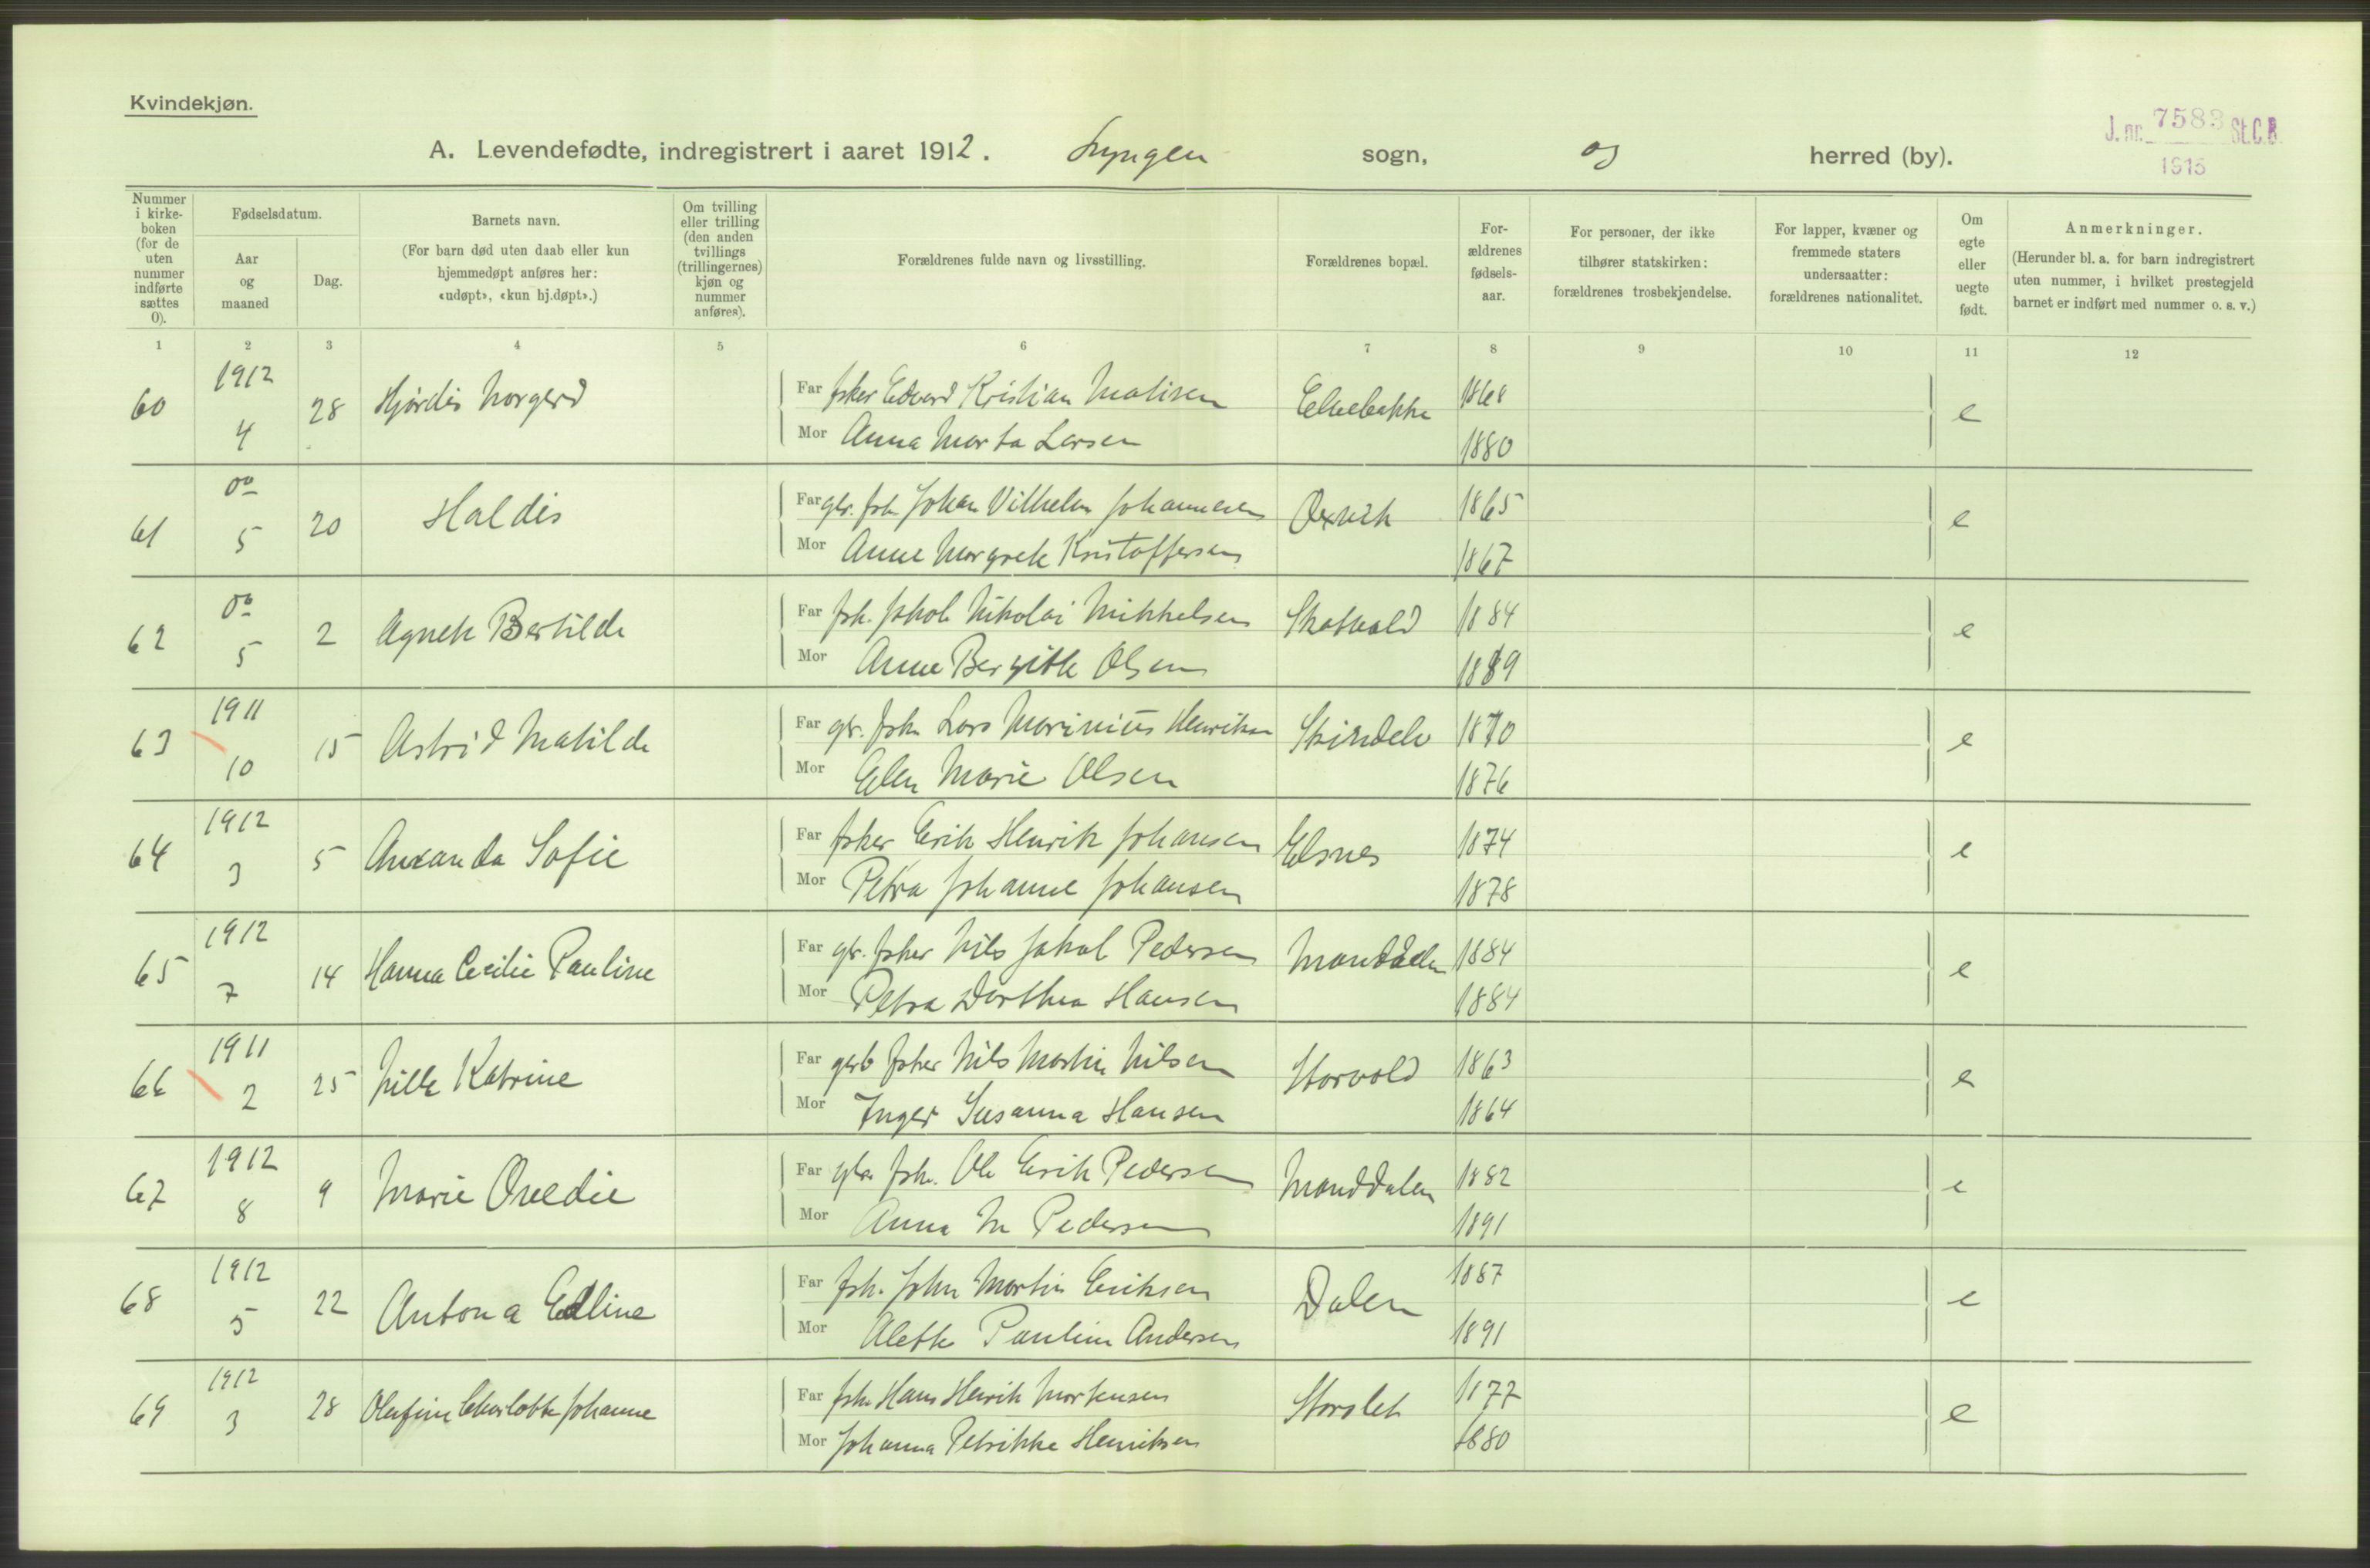 Kvindekjøn.
A. Levendefødte, indregistrert i aaret 1912. Lyngen sogn, og herred (by).
J. nr. 7583 St.C.B.
1913
Nummer i kirke-boken (for de uten nummer indførte sættes 0).
Fødselsdatum.
Aar og maaned
Dag.
Barnets navn.
(For barn død uten daab eller kun hjemmedøpt anføres her: «udøpt», «kun hj.døpt».)
Om tvilling eller trilling (den anden tvillings (trillingernes) kjøn og nummer anføres).
Forældrenes fulde navn og livsstilling.
Forældrenes bopæl.
For-ældrenes fødsels-aar.
For personer, der ikke tilhører statskirken: forældrenes trosbekjendelse.
For lapper, kvæner og fremmede staters undersaatter: forældrenes nationalitet.
Om egte eller uegte født.
Anmerkninger.
(Herunder bl. a. for barn indregistrert uten nummer, i hvilket prestegjeld barnet er indført med nummer o. s. v.)
1 2 3 4 5 6 7 8 9 10 11 12
60 1912 4 28 Hjørdis Norgerd
Far fsker Edvard Kristian Matisen Elvebakke 1868 e
Mor Anna Marta Larsen 1880
61 do 5 20 Haldis
Far gbr. fsk. Johan Vilhelm Johannesen Oxvik 1865 e
Mor Anne Margrete Kristoffersen 1867
62 do 5 2 Agnete Bertilde
Far fsk. Jakob Nikolai Mikkelsen Skatvold 1884 e
Mor Anne Bergitte Olsen 1889
63 1911 10 15 Astrid Matilde
Far gbr. fsk. Lars Marinius Henriksen 1870 e
Mor Elen Marie Olsen 1876
64 1912 3 5 Sofie
Far fsker Erik Henrik Johansen Elsnes 1874 e
Mor Petra Johanne Johansen 1878
65 1912 7 14 Hanna Cecilie Pauline
Far gbr. fsker Nils Jakob Pedersen Manddalen 1884 e
Mor Petra Dorthea Hansen 1884
66 1911 2 25 Katrine
Far gerb fsker Nils Martin Nilsen Storvold 1863 e
Mor Inger Susanna Hansen 1864
67 1912 8 9 Marie Ovedie
Far gbr. fsk. Ole Erik Pedersen Manddalen 1882 e
Mor Anna M Pedersen 1891
68 1912 5 22 Antona Edline
Far fsk. John Martin Eriksen Dalen 1887 e
Mor Alette Pauline Andersen 1891
69 1912 3 28 Olufine Charlotte Johanne
Far fsk. Hans Henrik Mortensen Storslet 1877 e
Mor Johanna Petrikke Henriksen 1880